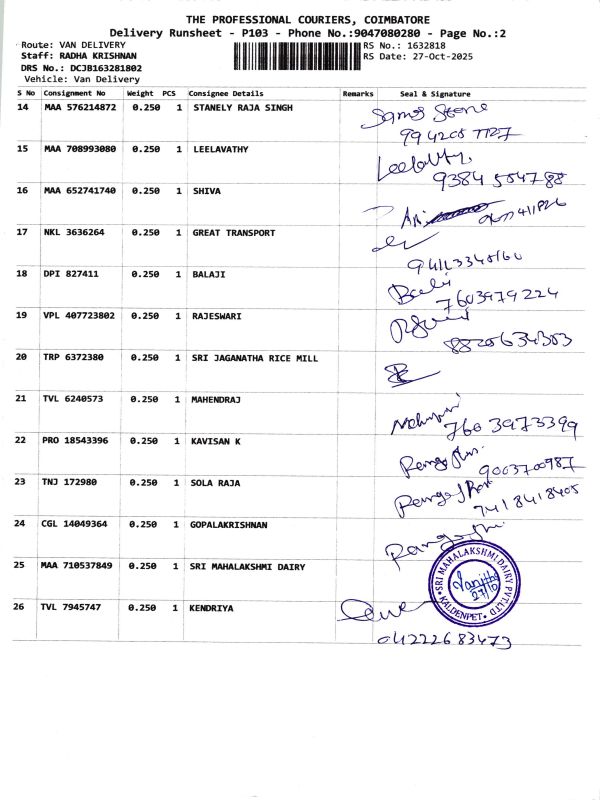 THE PROFESSIONAL COURIERS, COIMBATORE
Delivery Runsheet - P103 - Phone No.:9047080280 - Page No.:2
Route: VAN DELIVERY RS No.: 1632818
Staff: RADHA KRISHNAN RS Date: 27-Oct-2025
DRS No.: DCJB163281802
Vehicle: Van Delivery
S No Consignment No Weight PCS Consignee Details Remarks Seal & Signature
14 MAA 576214872 0.250 1 STANELY RAJA SINGH
15 MAA 708993080 0.250 1 LEELAVATHY Leelavathy
9384 584788
16 MAA 652741740 0.250 1 SHIVA
17 NKL 3636264 0.250 1 GREAT TRANSPORT
18 DPI 827411 0.250 1 BALAJI Balaji
7603979224
19 VPL 407723802 0.250 1 RAJESWARI
8820634303
20 TRP 6372380 0.250 1 SRI JAGANATHA RICE MILL
21 TVL 6240573 0.250 1 MAHENDRAJ
760 3973399
22 PRO 18543396 0.250 1 KAVISAN K
9003700987
23 TNJ 172980 0.250 1 SOLA RAJA
7418418405
24 CGL 14049364 0.250 1 GOPALAKRISHNAN
25 MAA 710537849 0.250 1 SRI MAHALAKSHMI DAIRY
SRI MAHALAKSHMI DAIRY PVT.LTD
KALDENPET
27/10
26 TVL 7945747 0.250 1 KENDRIYA
04222683473